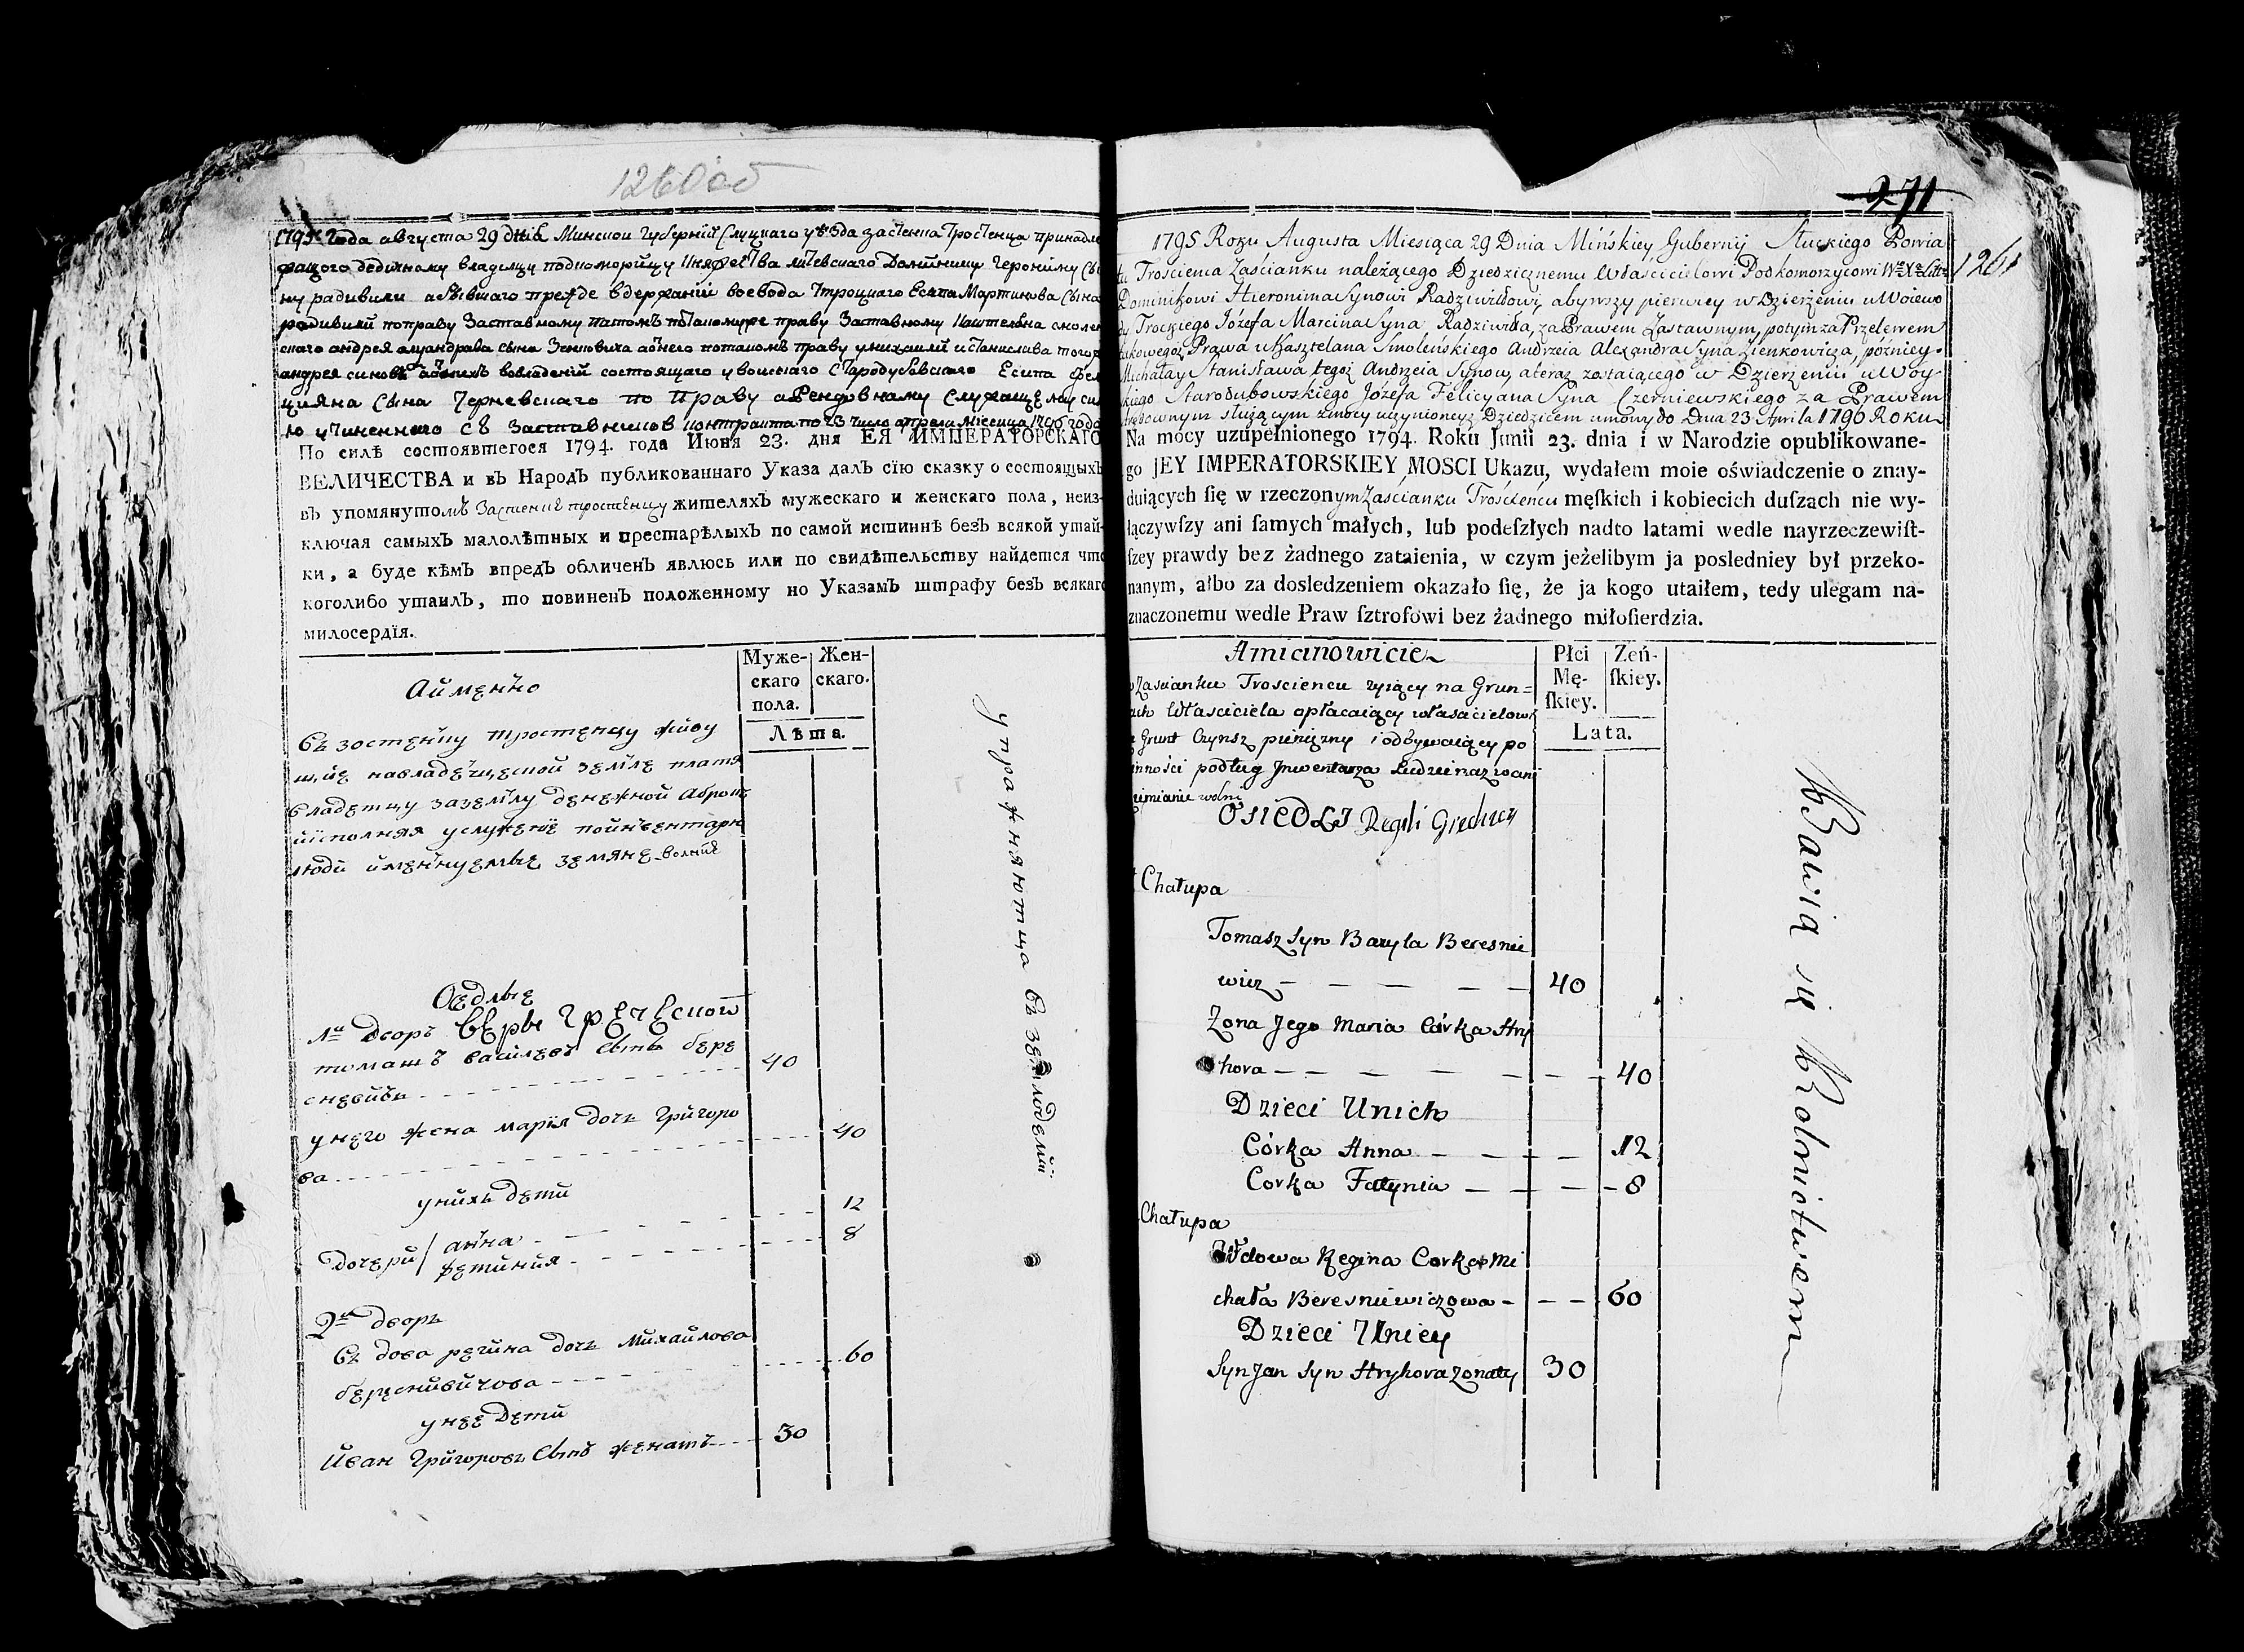 1260об
1795 года августа 29 дня Минской губернии Слуцкаго уезда застенка Тростенца принадле
жащого дедичному владелцу подкоморицу Княжества литевскаго Доминику Герониму Сы
ну радивилу а бывшаго прежде в держании воевода троцкаго Есипа Мартинова Сына
радивила по праву Заставному потомъ по таковому же праву Заставному каштеляна смолен
скаго андрея александрова сына Зенковича а после потомъ праву у михаила и станислава того ж
андрея синовъ во владении состоящаго у войскаго Стародубовскаго Есипа Фел
ицияна Сына Черневскаго по Праву аРендовному Служащему си
ю учиненнаго съ заставниковъ контракта по 23 число апреля месяца 1796 года
По силѣ состоявшегося 1794. года Июня 23. дня ЕЯ ИМПЕРАТОРСКАГО
ВЕЛИЧЕСТВА и въ Народъ публикованнаго Указа далъ сїю сказку о состоящыхъ
въ упомянутомъ Застенке тростенцу жителяхъ мужескаго и женскаго пола, неиз-
ключая самыхъ малолѣтныхъ и престарѣлыхъ по самой истиннѣ безъ всякой утай-
ки, а буде кѣмъ впредъ обличенъ явлюсь или по свидѣтельству найдется что
коголибо утаилъ, то повиненъ положенному по Указамъ штрафу безъ всякаго
милосердїя.
Муже- Жен-
скаго скаго.
пола.
Лѣта.
Аименно
Въ зостенку тростенцу живу
щие на владелческой земле платя
владелцу за землу денежной аброкъ
исполняя услужение по инвентарю
люди именуемые земяне волние
Оседлые
1й дворъ веры Греческой
томашъ василевъ Сынъ бере
сневичъ 40
у него жена мария дочь Григоро
ва 40
у нихъ дети
дочери анна 12
фетиния 8
2й дворъ
Вдова регина дочь михайлова
бересневичова 60
у нее дети
Иван григоровъ Сынъ женатъ 30
упражняютца въ земледелии
271
1261
1795 Roku Augusta Miesiąca 29 Dnia Mińskiey Gubernij Słuckiego Powia
tu Trościenia Zaścianku należącego Dziedzicznemu Właścicielowi Podkomorzycowi W. X. Litt.
Dominikowi Hieronima Synowi Radziwiłłowi, abywszy pierwiey w Dzierżeniu u Woiewo
dy Trockiego Józefa Marcina Syna Radziwiła, za Prawem Zastawnym, potym za Przelewem
takowegoż Prawa u Kasztelana Smoleńskiego Andrzeia Alexandra Syna Zienkowicza, pózniey
Michała y Stanisława tegoż Andrzeia Synow, a teraz zostaiącego w Dzierżeniu u Woy
skiego Starodubowskiego Józefa Felicyana Syna Czerniewskiego za Prawem
arędownym służącym z mocy uczynioney z Dziedzicem umowy do Dnia 23 Aprila 1796 Roku
Na mocy uzupełnionego 1794. Roku Junii 23. dnia i w Narodzie opublikowane-
go JEY IMPERATORSKIEY MOSCI Ukazu, wydałem moie oświadczenie o znay-
duiących ſię w rzeczonym Zaścianku Trościeńcu męſkich i kobiecich duſzach nie wy-
łączywſzy ani ſamych małych, lub podeſzłych nadto latami wedle nayrzeczewiſt-
ſzey prawdy bez żadnego zataienia, w czym jeżelibym ja posledniey był przeko-
nanym, albo za dosledzeniem okazało ſię, że ja kogo utaiłem, tedy ulegam na-
znaczonemu wedle Praw ſztrofowi bez żadnego miłoſierdzia.
Płci Zeń-
Mę- ſkiey.
ſkiey.
Lata.
Amianowicie
w Zascianku Trosciencu zyiący na Grun=
tach Własciciela opłacaiący własacielowi
z Grunt Czynsz pieniężny i odbywaiący po
winności podług Jnwentarza Ludzie nazwani
ziemianie wolni
OSIEDLI Regili Greckiey
Chałupa
Tomasz Syn Bazyla Beresnie
wicz 40
Zona Jego Maria Córka Hry
hora 40
Dzieci Unich
Córka Anna 12
Corka Fatynia 8
Chałupa
Wdowa Regina Corka Mi
chała Beresniewiczowa 60
Dzieci Uniey
Syn Jan Syn Hryhora zonaty 30
Bawią się Rolnictwem